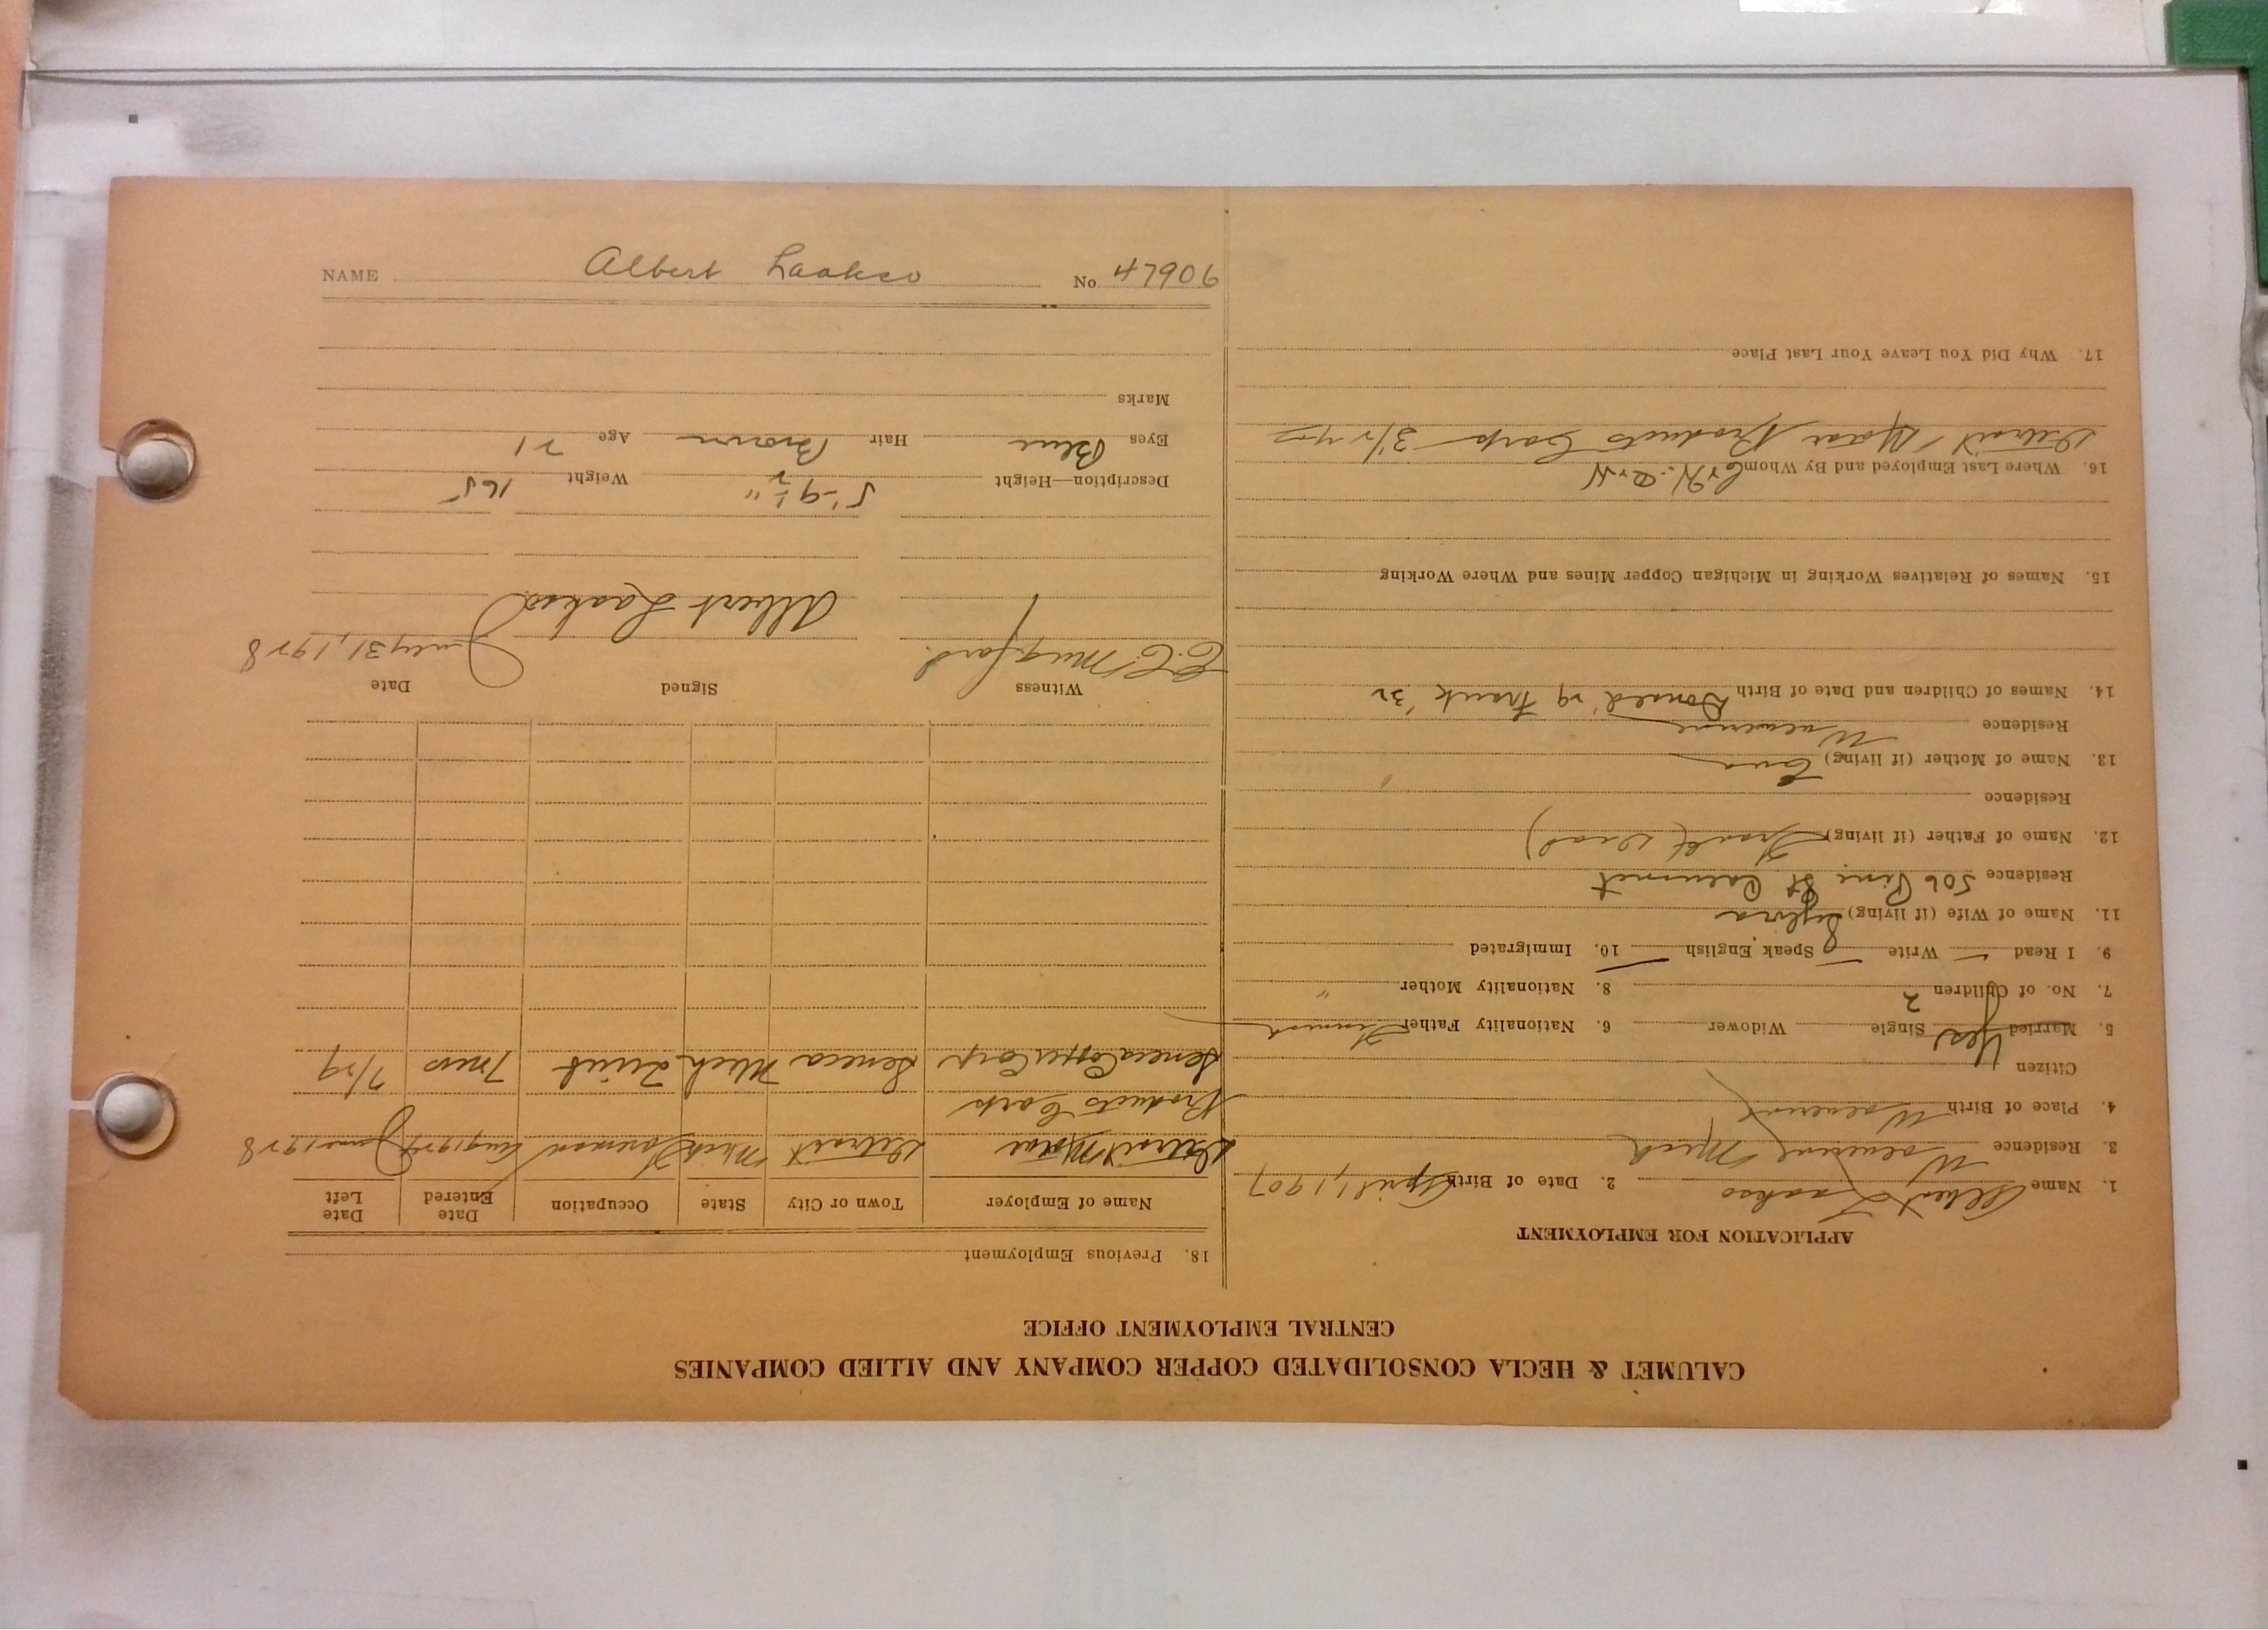 CALUMET & HECLA CONSOLIDATED COPPER COMPANY AND ALLIED COMPANIES
CENTRAL EMPLOYMENT OFFICE
APPLICATION FOR EMPLOYMENT
1. Name Albert Laakso 2. Date of Birth April 1, 1907
3. Residence Wolverine Mich
4. Place of Birth Wolverine
Citizen Yes
5. Married Single Widower 6. Nationality Father Finnish
7. No. of Children 2 8. Nationality Mother "
9. I Read Write Speak English 10. Immigrated
11. Name of Wife (if living) Sylvia
Residence 506 Pine St Calumet
12. Name of Father (if living) Frank (dead)
Residence
13. Name of Mother (if living)
Residence Wolverine
14. Names of Children and Date of Birth Donald '29 Frank '32
15. Names of Relatives Working in Michigan Copper Mines and Where Working
16. Where Last Employed and By Whom C & H.
Detroit Products Corp 3 1/2 yrs
17. Why Did You Leave Your Last Place
18. Previous Employment
Name of Employer Town or City State Occupation Date Entered Date Left
Detroit Detroit Mich Foreman Aug 1924 June 1928
Products Corp
Seneca Copper Corp Seneca Mich 7 mos 7/29
Witness Signed Date
C.C. Mugford. Albert Laakso July 31, 1928
Description—Height 5'-9 1/2" Weight 165
Eyes Blue Hair Brown Age 21
Marks
NAME Albert Laakso No. 47906